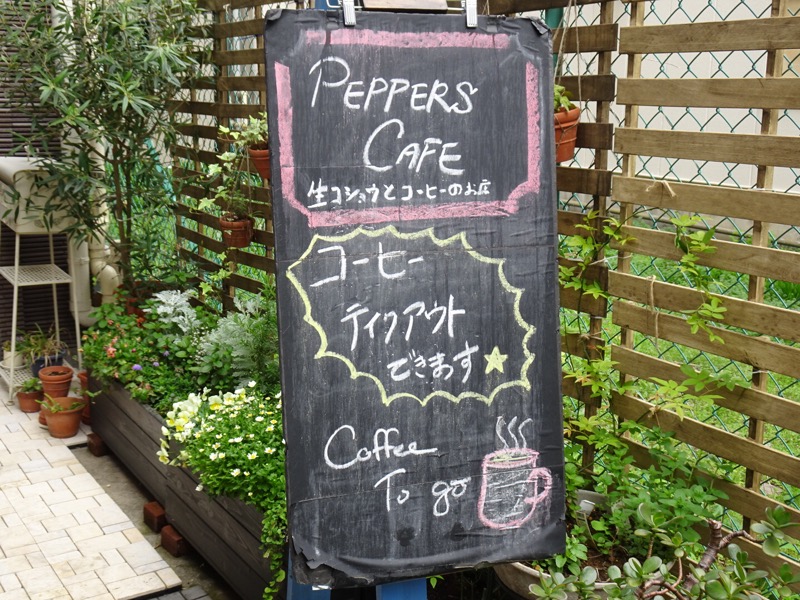 PEPPERS
CAFE
生コショウとコーヒーのお店
コーヒー
テイクアウト
できます
Coffee
To go